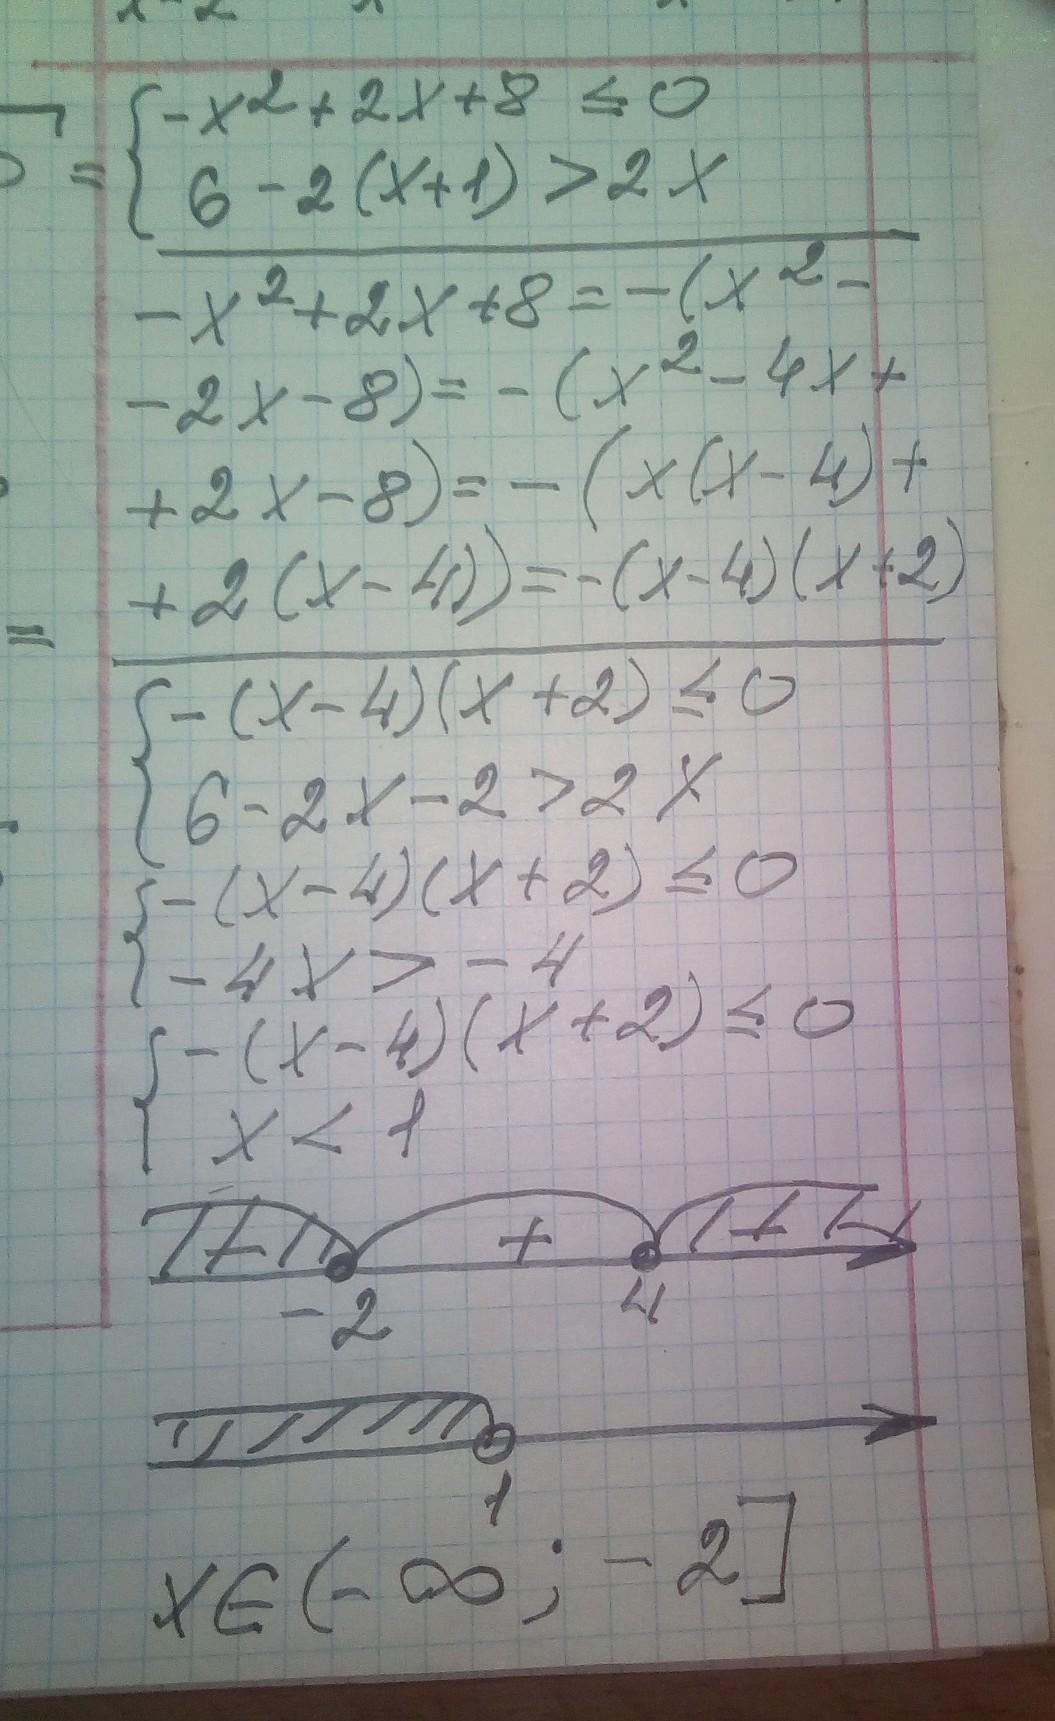 = { -x² + 2x + 8 ≤ 0
6 - 2(x+1) > 2x
-x² + 2x + 8 = -(x² -
- 2x - 8) = -(x² - 4x +
+ 2x - 8) = -(x(x-4) +
+ 2(x-4)) = -(x-4)(x+2)
=
{ -(x-4)(x+2) ≤ 0
6 - 2x - 2 > 2x
{ -(x-4)(x+2) ≤ 0
-4x > -4
{ -(x-4)(x+2) ≤ 0
x < 1
- + -
-2 4
1
x∈(-∞; -2]